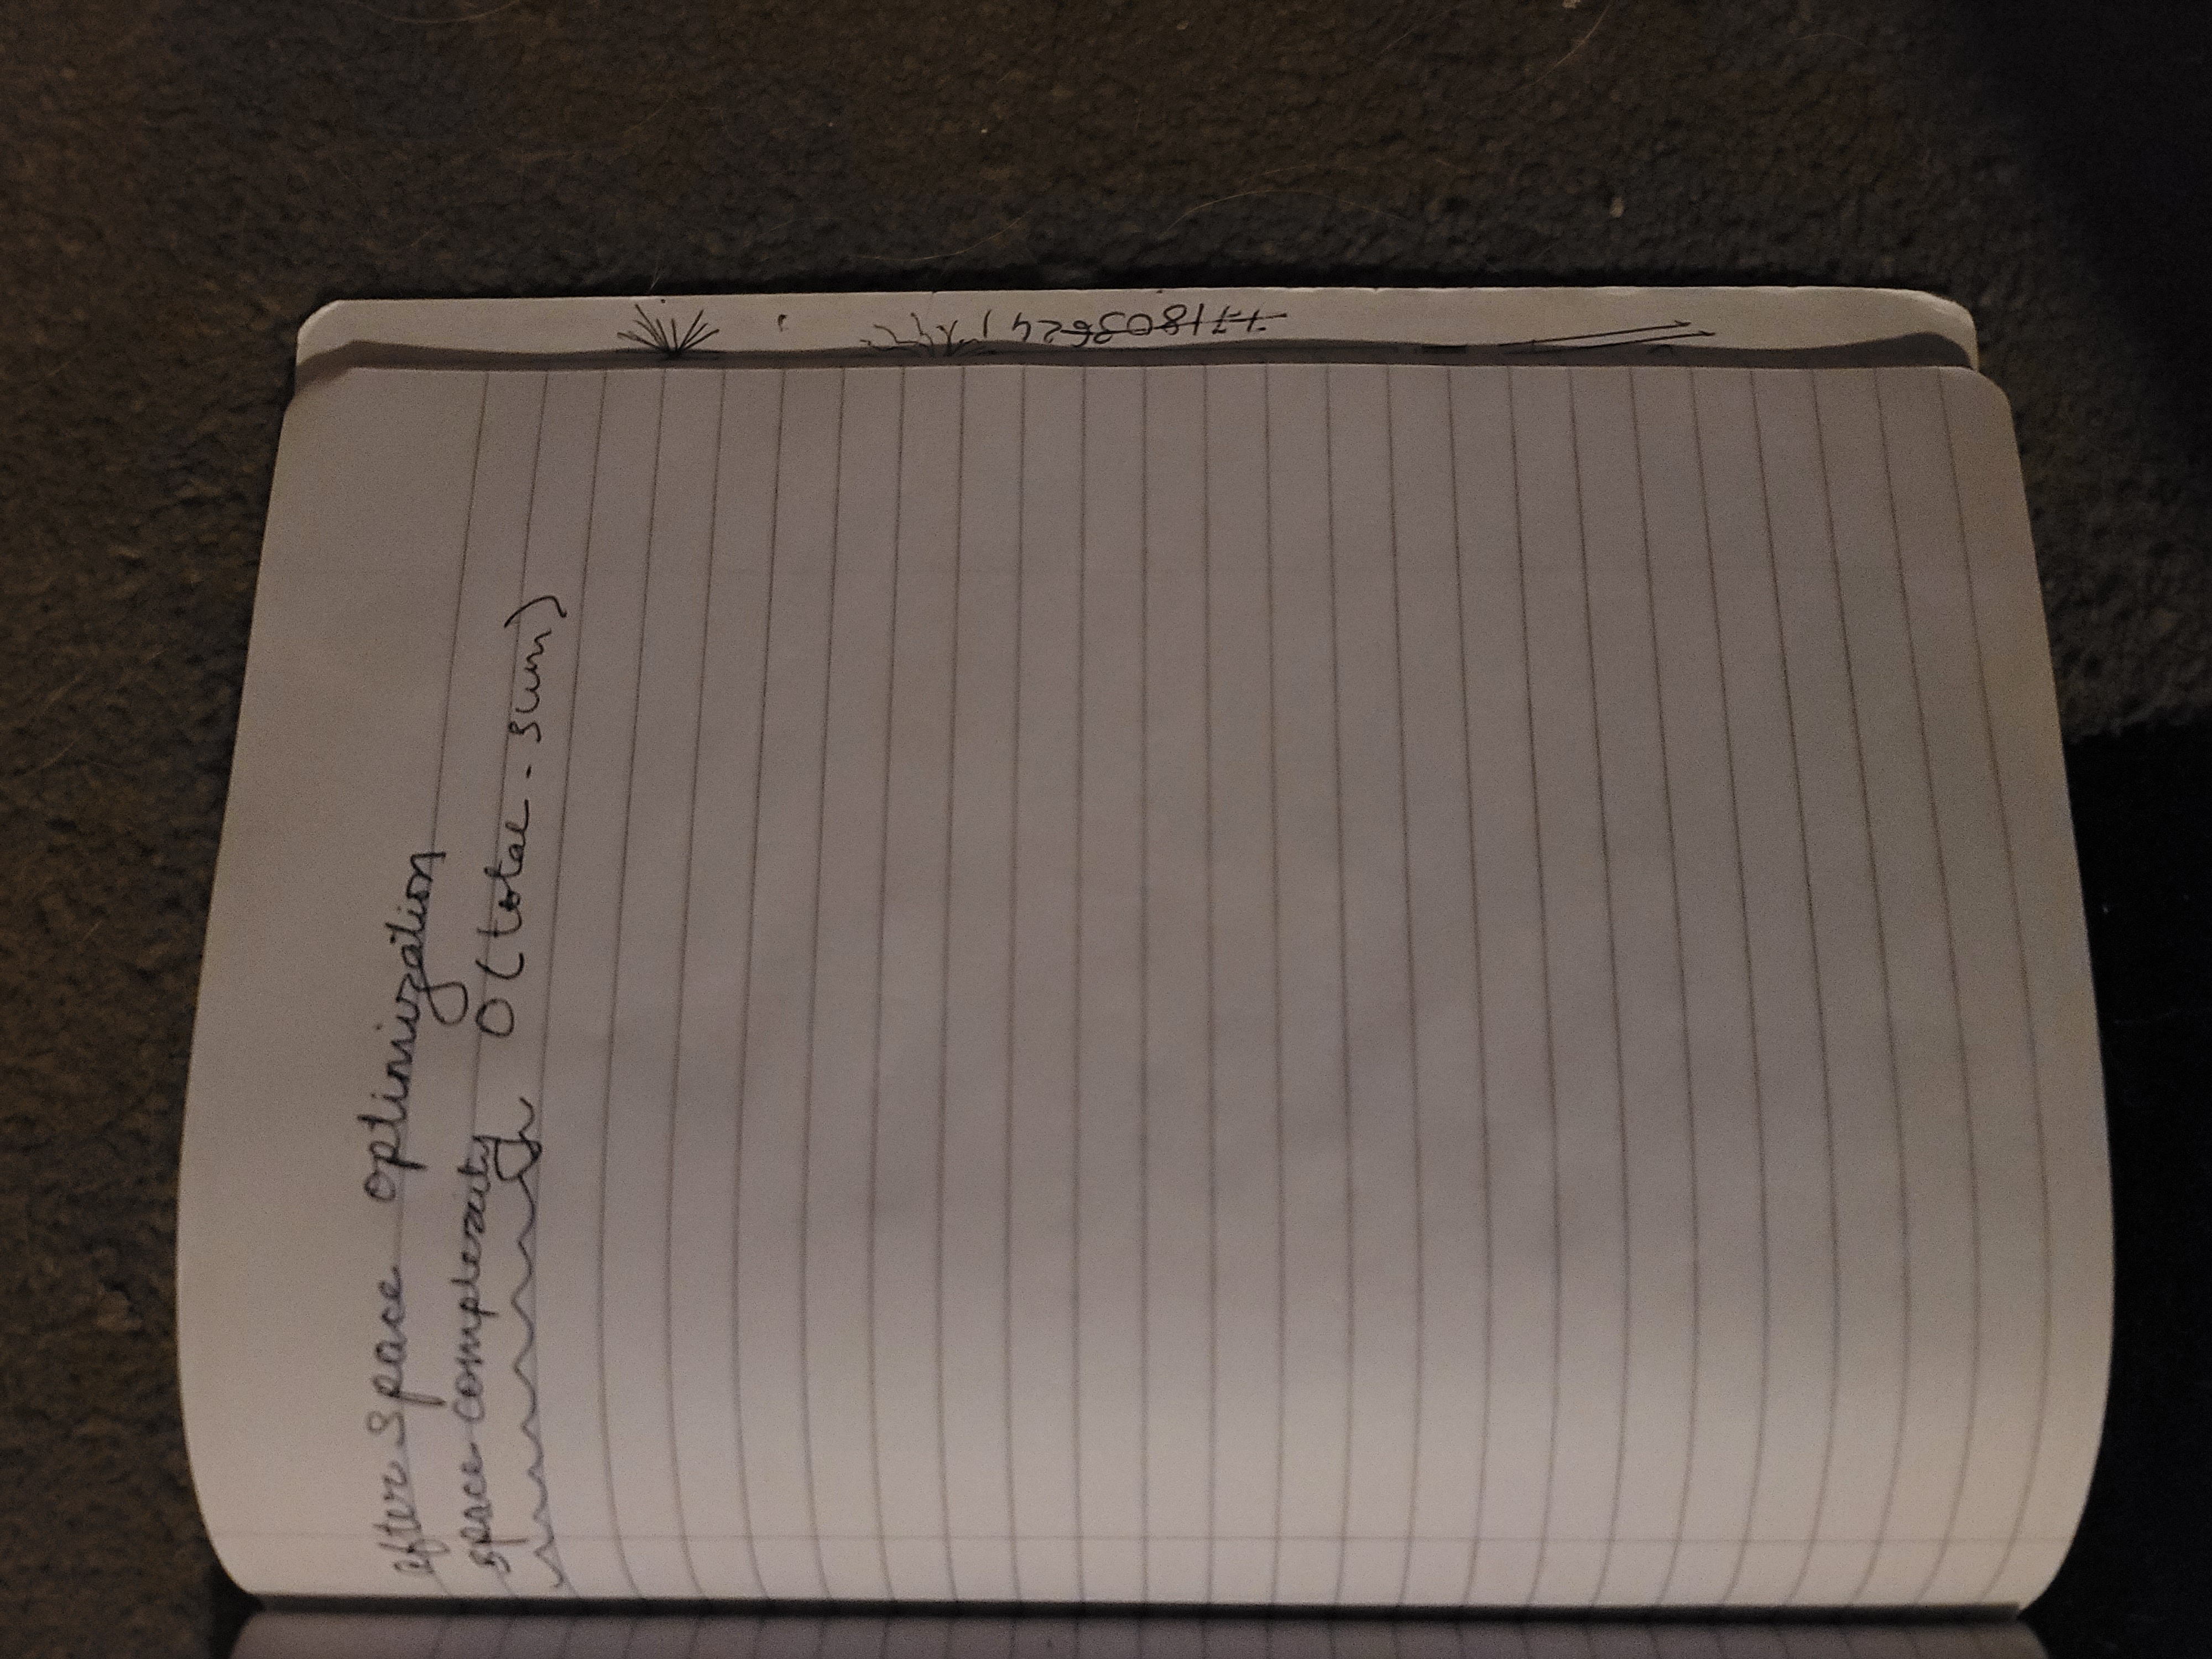 after space optimization
space complexity O(total - sum)